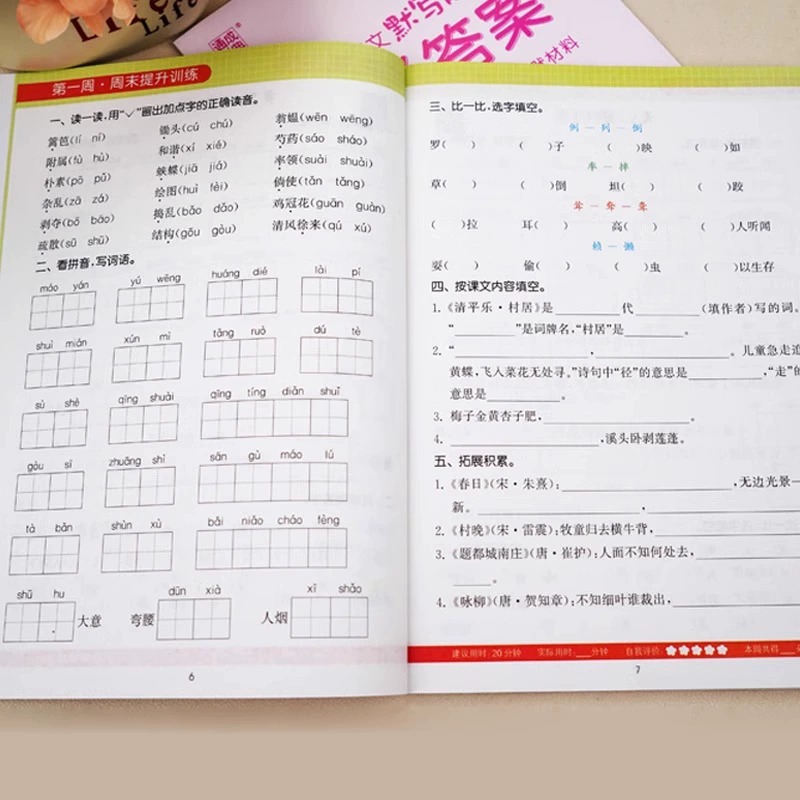 Life
Life
通成
文默写
答案
材料
第一周·周末提升训练
一、读一读,用“✓”画出加点字的正确读音。
篱笆(lí ní) 锄头(cú chú) 翁媪(wēn wēng)
附属(fù hù) 和谐(xí xié) 芍药(sáo sháo)
朴素(pō pǔ) 蛱蝶(jiā jiá) 率领(suài shuài)
杂乱(zā zá) 绘图(huì fèi) 倘使(tǎn tǎng)
剥夺(bō bāo) 捣乱(bǎo dǎo) 鸡冠花(guān guàn)
疏散(sū shū) 结构(gōu gòu) 清风徐来(qú xú)
二、看拼音,写词语。
máo yán yú wēng huáng dié lài pí
shuì mián xún mì tǎng ruò dú tè
sù shè qīng shuài qīng tíng diǎn shuǐ
gòu sī zhuāng shì sān gù máo lú
tà bǎn shùn xù bǎi niǎo cháo fèng
shū hu dūn xià xī shǎo
大意 弯腰 人烟
6
三、比一比,选字填空。
例—列—倒
罗( ) ( )子 ( )映 ( )如
率—摔
草( ) ( )倒 坦( ) ( )跤
耸—耷—耸
( )拉 耳( ) 高( ) ( )人听闻
赖—懒
耍( ) 偷( ) ( )虫 ( )以生存
四、按课文内容填空。
1.《清平乐·村居》是 代 (填作者)写的词。
“ ”是词牌名,“村居”是 。
2.“ , 。儿童急走追
黄蝶,飞入菜花无处寻。”诗句中“径”的意思是 ,“走”的
意思是 。
3. 梅子金黄杏子肥, 。
4. ,溪头卧剥莲蓬。
五、拓展积累。
1.《春日》(宋·朱熹): ,无边光景一
新。 ,
2.《村晚》(宋·雷震):牧童归去横牛背,
3.《题都城南庄》(唐·崔护):人面不知何处去,
。
4.《咏柳》(唐·贺知章):不知细叶谁裁出,
建议用时:20分钟 实际用时: 分钟 自我评价: 本周共得
7